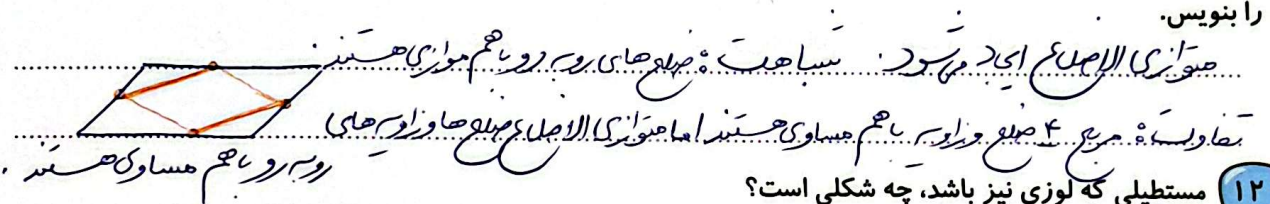 را بنویس.
متوازی الاضلاع ایجاد می‌شود. شباهت: ضلع‌های روبه رو باهم موازی هستند.
تفاوت: مربع ۴ ضلع و زاویه باهم مساوی هستند اما متوازی الاضلاع ضلع‌ها و زاویه‌های
روبه رو باهم مساوی هستند.
۱۲ مستطیلی که لوزی نیز باشد، چه شکلی است؟